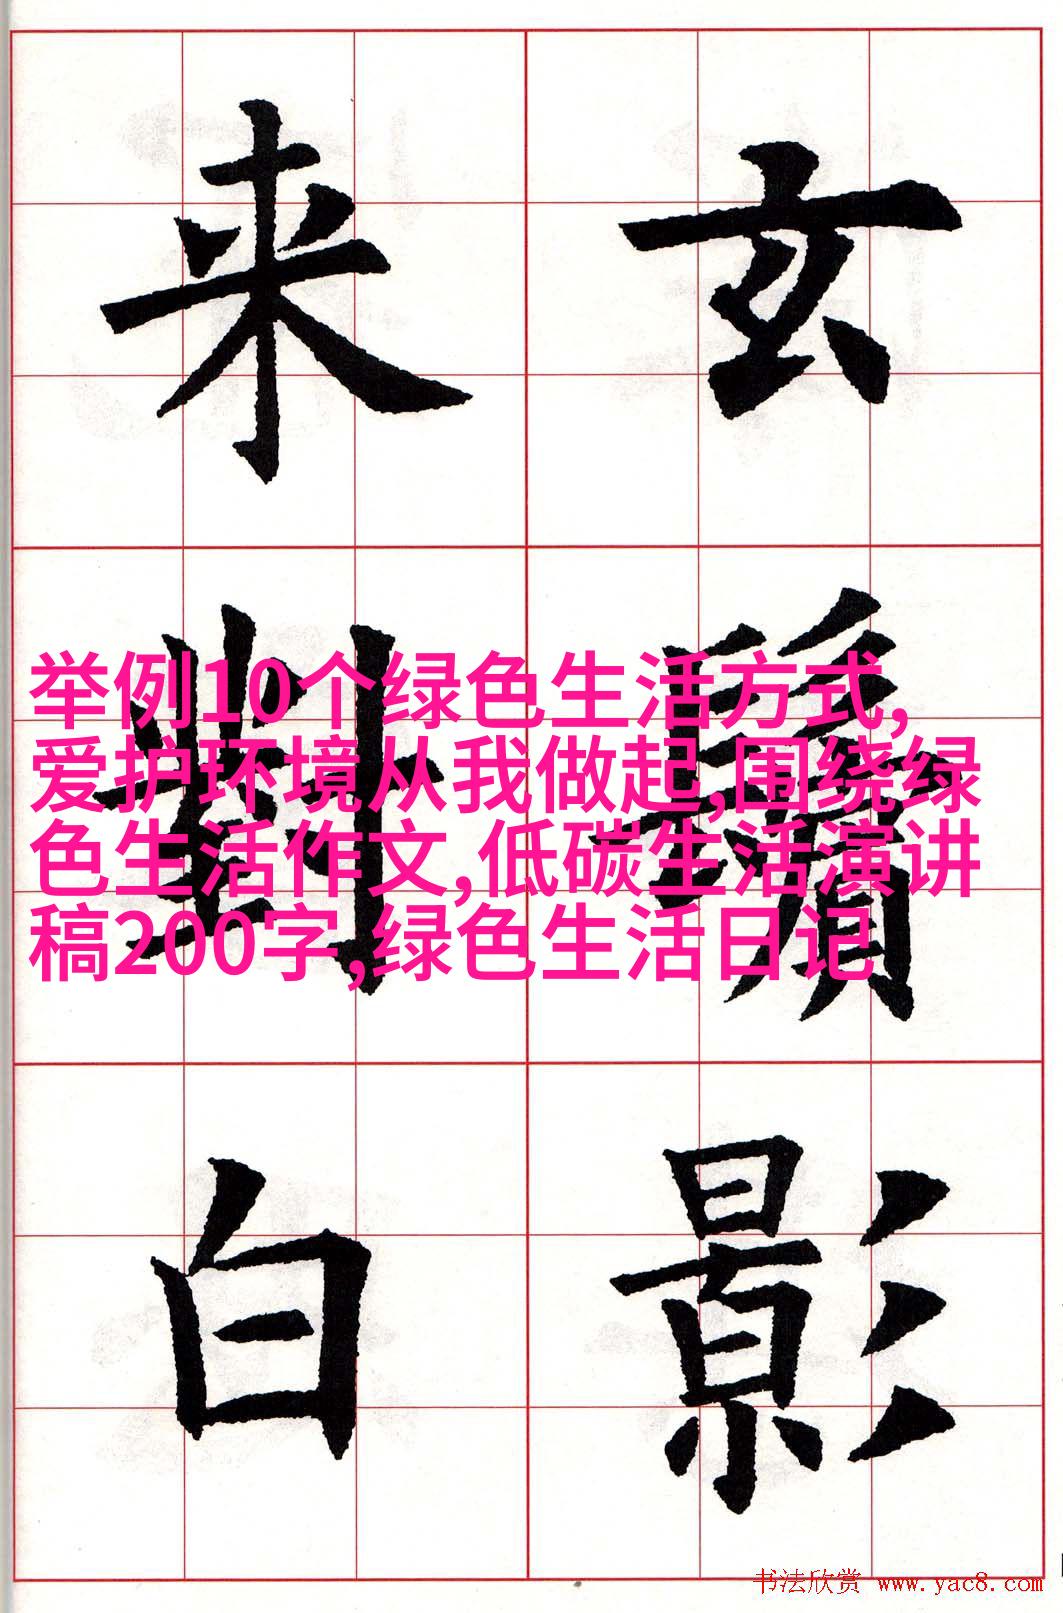 玄鬢影
来對白
举例10个绿色生活方式,
爱护环境从我做起,围绕绿
色生活作文,低碳生活演讲
稿200字,绿色生活日记
书法欣赏 www.yac8.com